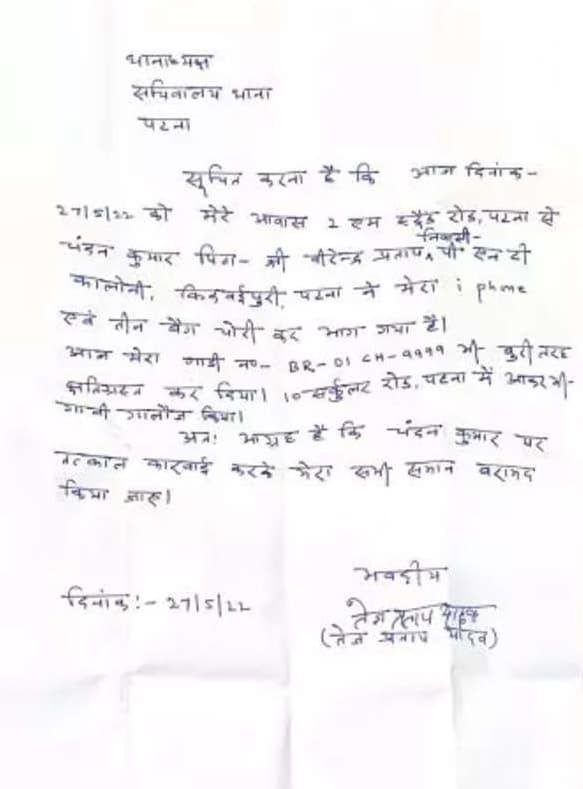 थानाध्यक्ष
सचिवालय थाना
पटना
सूचित करना है कि आज दिनांक-
27/5/22 को मेरे आवास 2 एम स्ट्रैंड रोड, पटना से
निवासी-
चंदन कुमार पिता- श्री वीरेन्द्र प्रताप, पी एन टी
कालोनी, किदवईपुरी, पटना ने मेरा i phone
एवं तीन बैग चोरी कर भाग गया है।
आज मेरा गाडी न०- BR-01 CH-9999 भी बुरी तरह
क्षतिग्रस्त कर दिया। 10-सर्कुलर रोड, पटना में आकर भी-
गाली गालौज किया।
अतः आग्रह है कि चंदन कुमार पर
तत्काल कारवाई करके मेरा सभी समान बरामद
किया जाए।
भवदीय
दिनांक:- 27/5/22
तेज प्रताप यादव
(तेज प्रताप यादव)